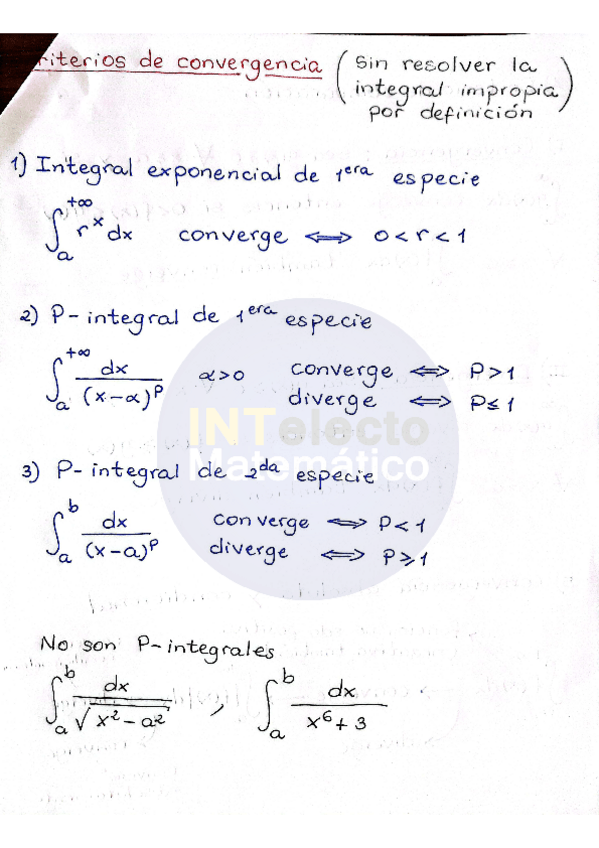 riterios de convergencia (Sin resolver la
integral impropia
por definición)
1) Integral exponencial de 1era especie
∫_a^{+∞} r^x dx converge ⟺ 0 < r < 1
2) P-integral de 1era especie
∫_a^{+∞} dx/(x-α)^p α>0 converge ⟺ P>1
diverge ⟺ P≤1
INTelecto
Matemático
3) P-integral de 2da especie
∫_a^b dx/(x-a)^p converge ⟺ P<1
diverge ⟺ P≥1
No son P-integrales
∫_a^b dx/√(x²-a²) , ∫_a^b dx/(x⁶+3)